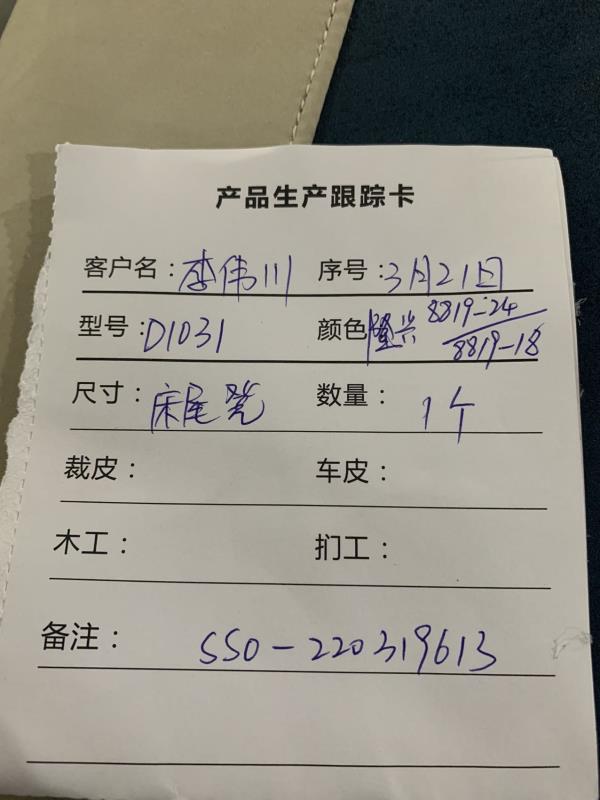 产品生产跟踪卡
客户名：李伟川 序号：3月21日
型号：D1031 颜色 隆兴 8819-24/8819-18
尺寸：床尾凳 数量：1个
裁皮： 车皮：
木工： 扪工：
备注：SSO-220319613